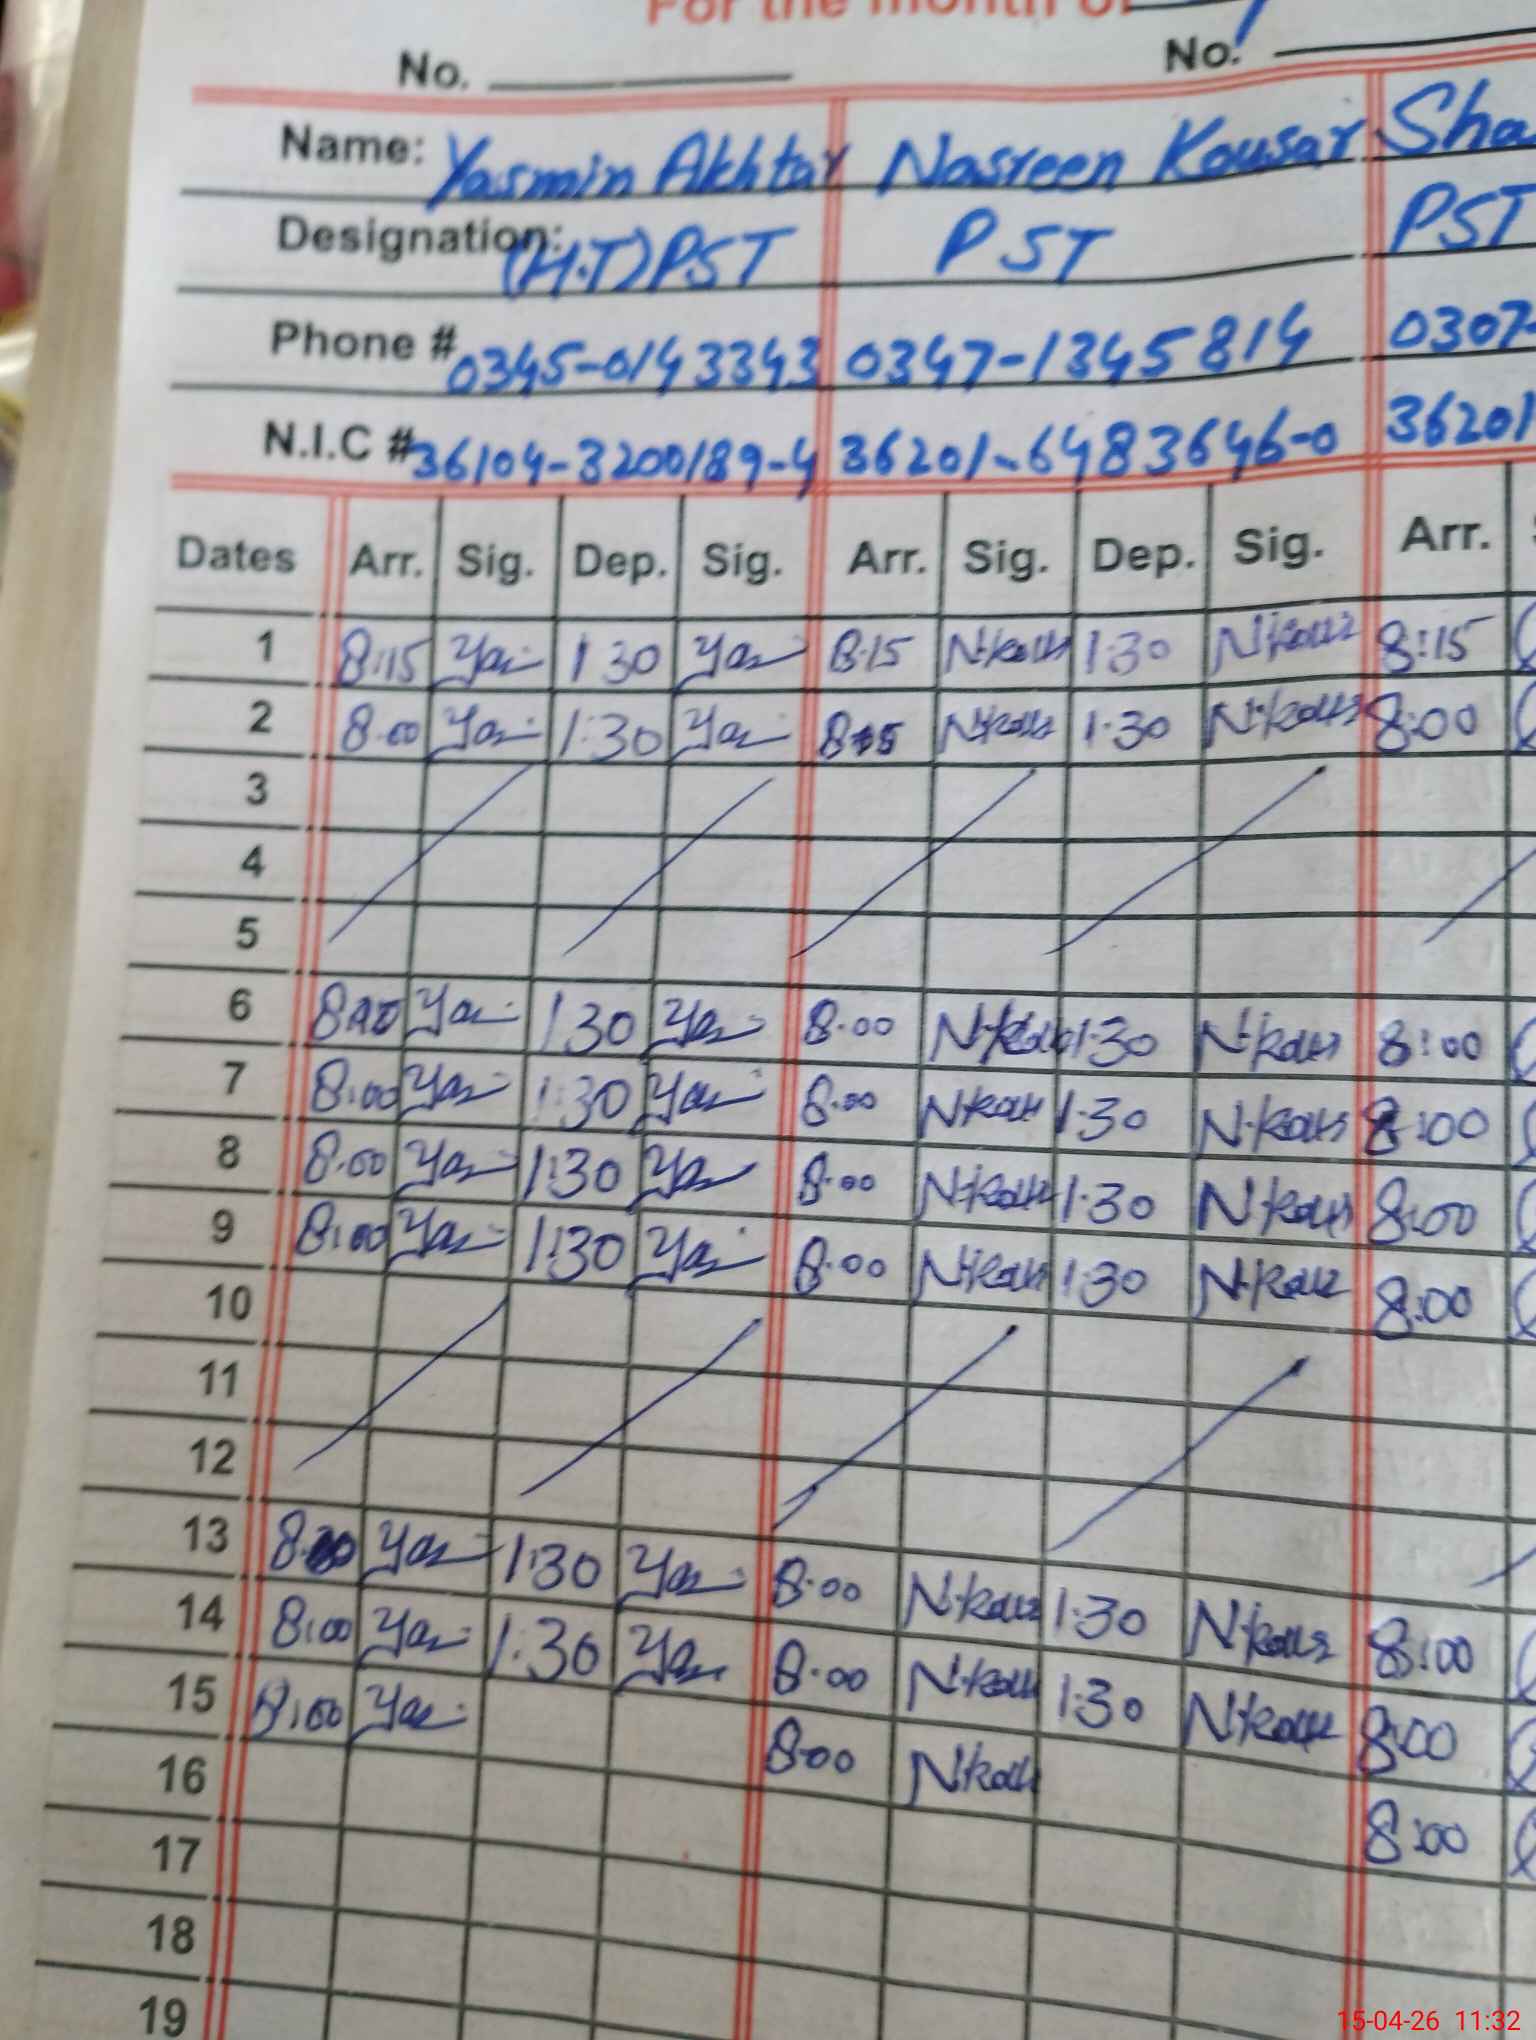 For the month of
No. No.
Name: Yasmin Akhtar Nasreen Kousar Sha
Designation: (H.T) PST PST PST
Phone # 0345-0143343 0347-1345814 0307-
N.I.C # 36104-3200189-4 36201-6483646-0 36201
Dates Arr. Sig. Dep. Sig. Arr. Sig. Dep. Sig. Arr.
1 8:15 Yas 1 30 Yas 8.15 N.kous 1.30 N.kous 8:15
2 8.00 Yas 1:30 Yas N.kous 1.30 N.kous 8:00
3
4
5
6 Yas 1 30 Yas 8.00 N.kous 1.30 N.kous 8:00
7 8:00 Yas 1:30 Yas 8.00 N.kous 1.30 N.kous 8:00
8 8.00 Yas 1:30 Yas 8.00 N.kous 1.30 N.kous 8:00
9 8:00 Yas 1:30 Yas 8.00 N.kous 1.30 N.kous 8:00
10
11
12
13 Yas 1:30 Yas 8.00 N.kous 1.30 N.kous 8:00
14 8:00 Yas 1:30 Yas 8.00 N.kous 1:30 N.kous 8:00
15 8:00 Yas 8.00 N.kous 8:00
16
17
18
19
15-04-26 11:32